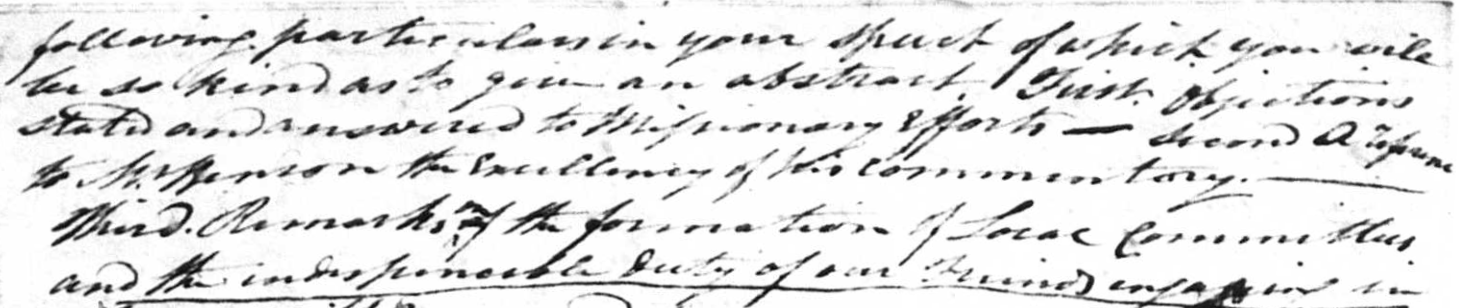 following particulars in your Speech of which you will
be so kind as to give an abstract. First. Objections
stated and answered to Missionary Efforts — Second A Reference
to Mr Benson the Excellency of his commentary. —
Third. Remarks of the formation of Local Committees
and the indispensable duty of our Friends engaging in